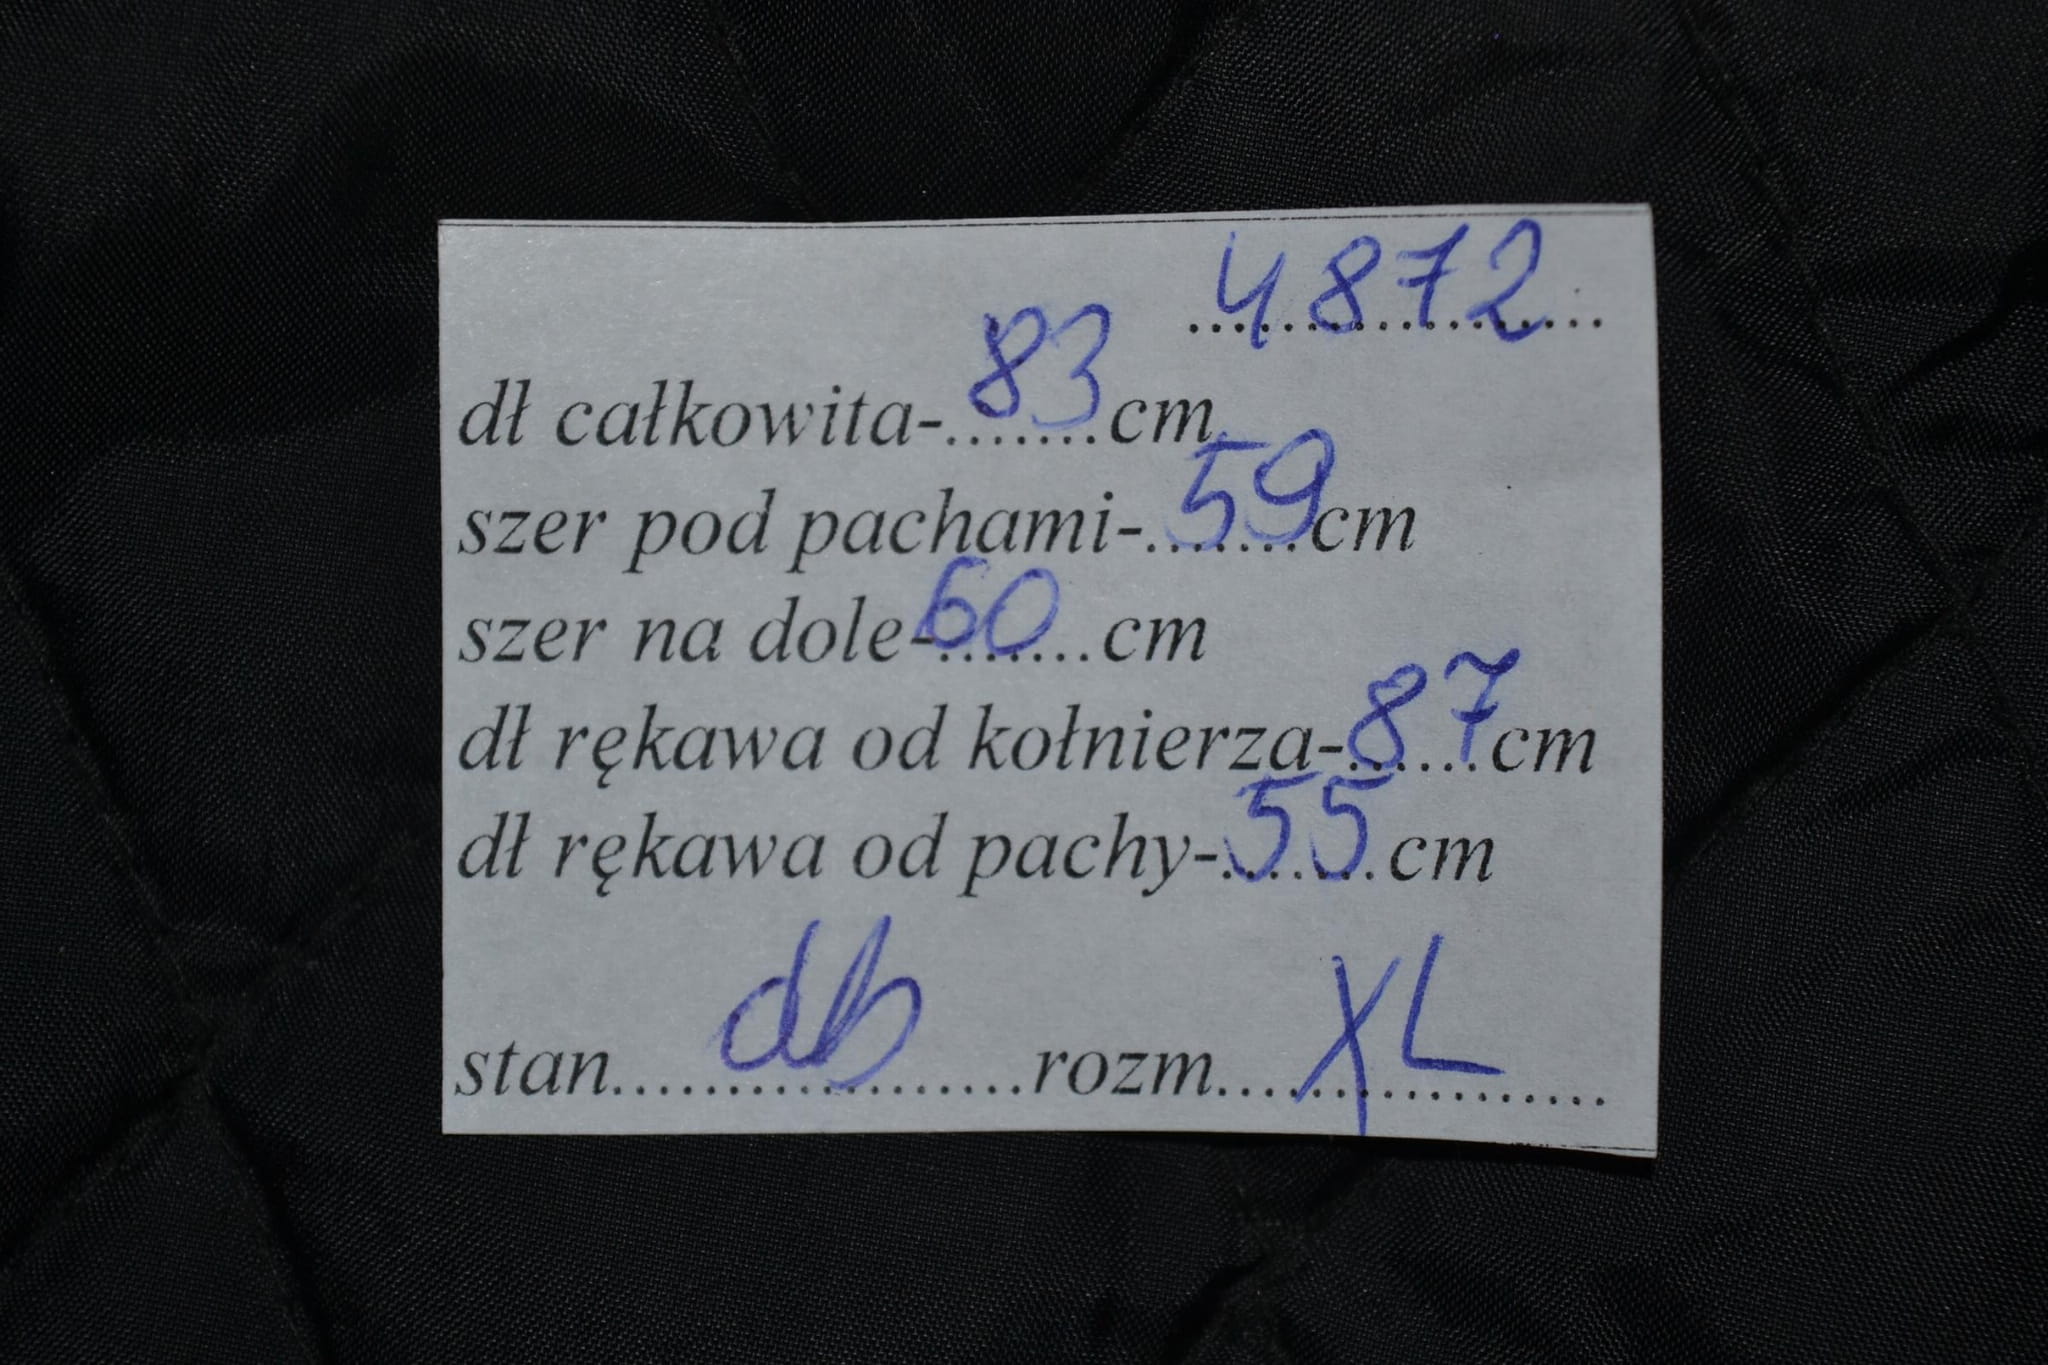 4872
dł całkowita-83cm
szer pod pachami-59cm
szer na dole-60cm
dł rękawa od kołnierza-87cm
dł rękawa od pachy-55cm
stan db rozm XL